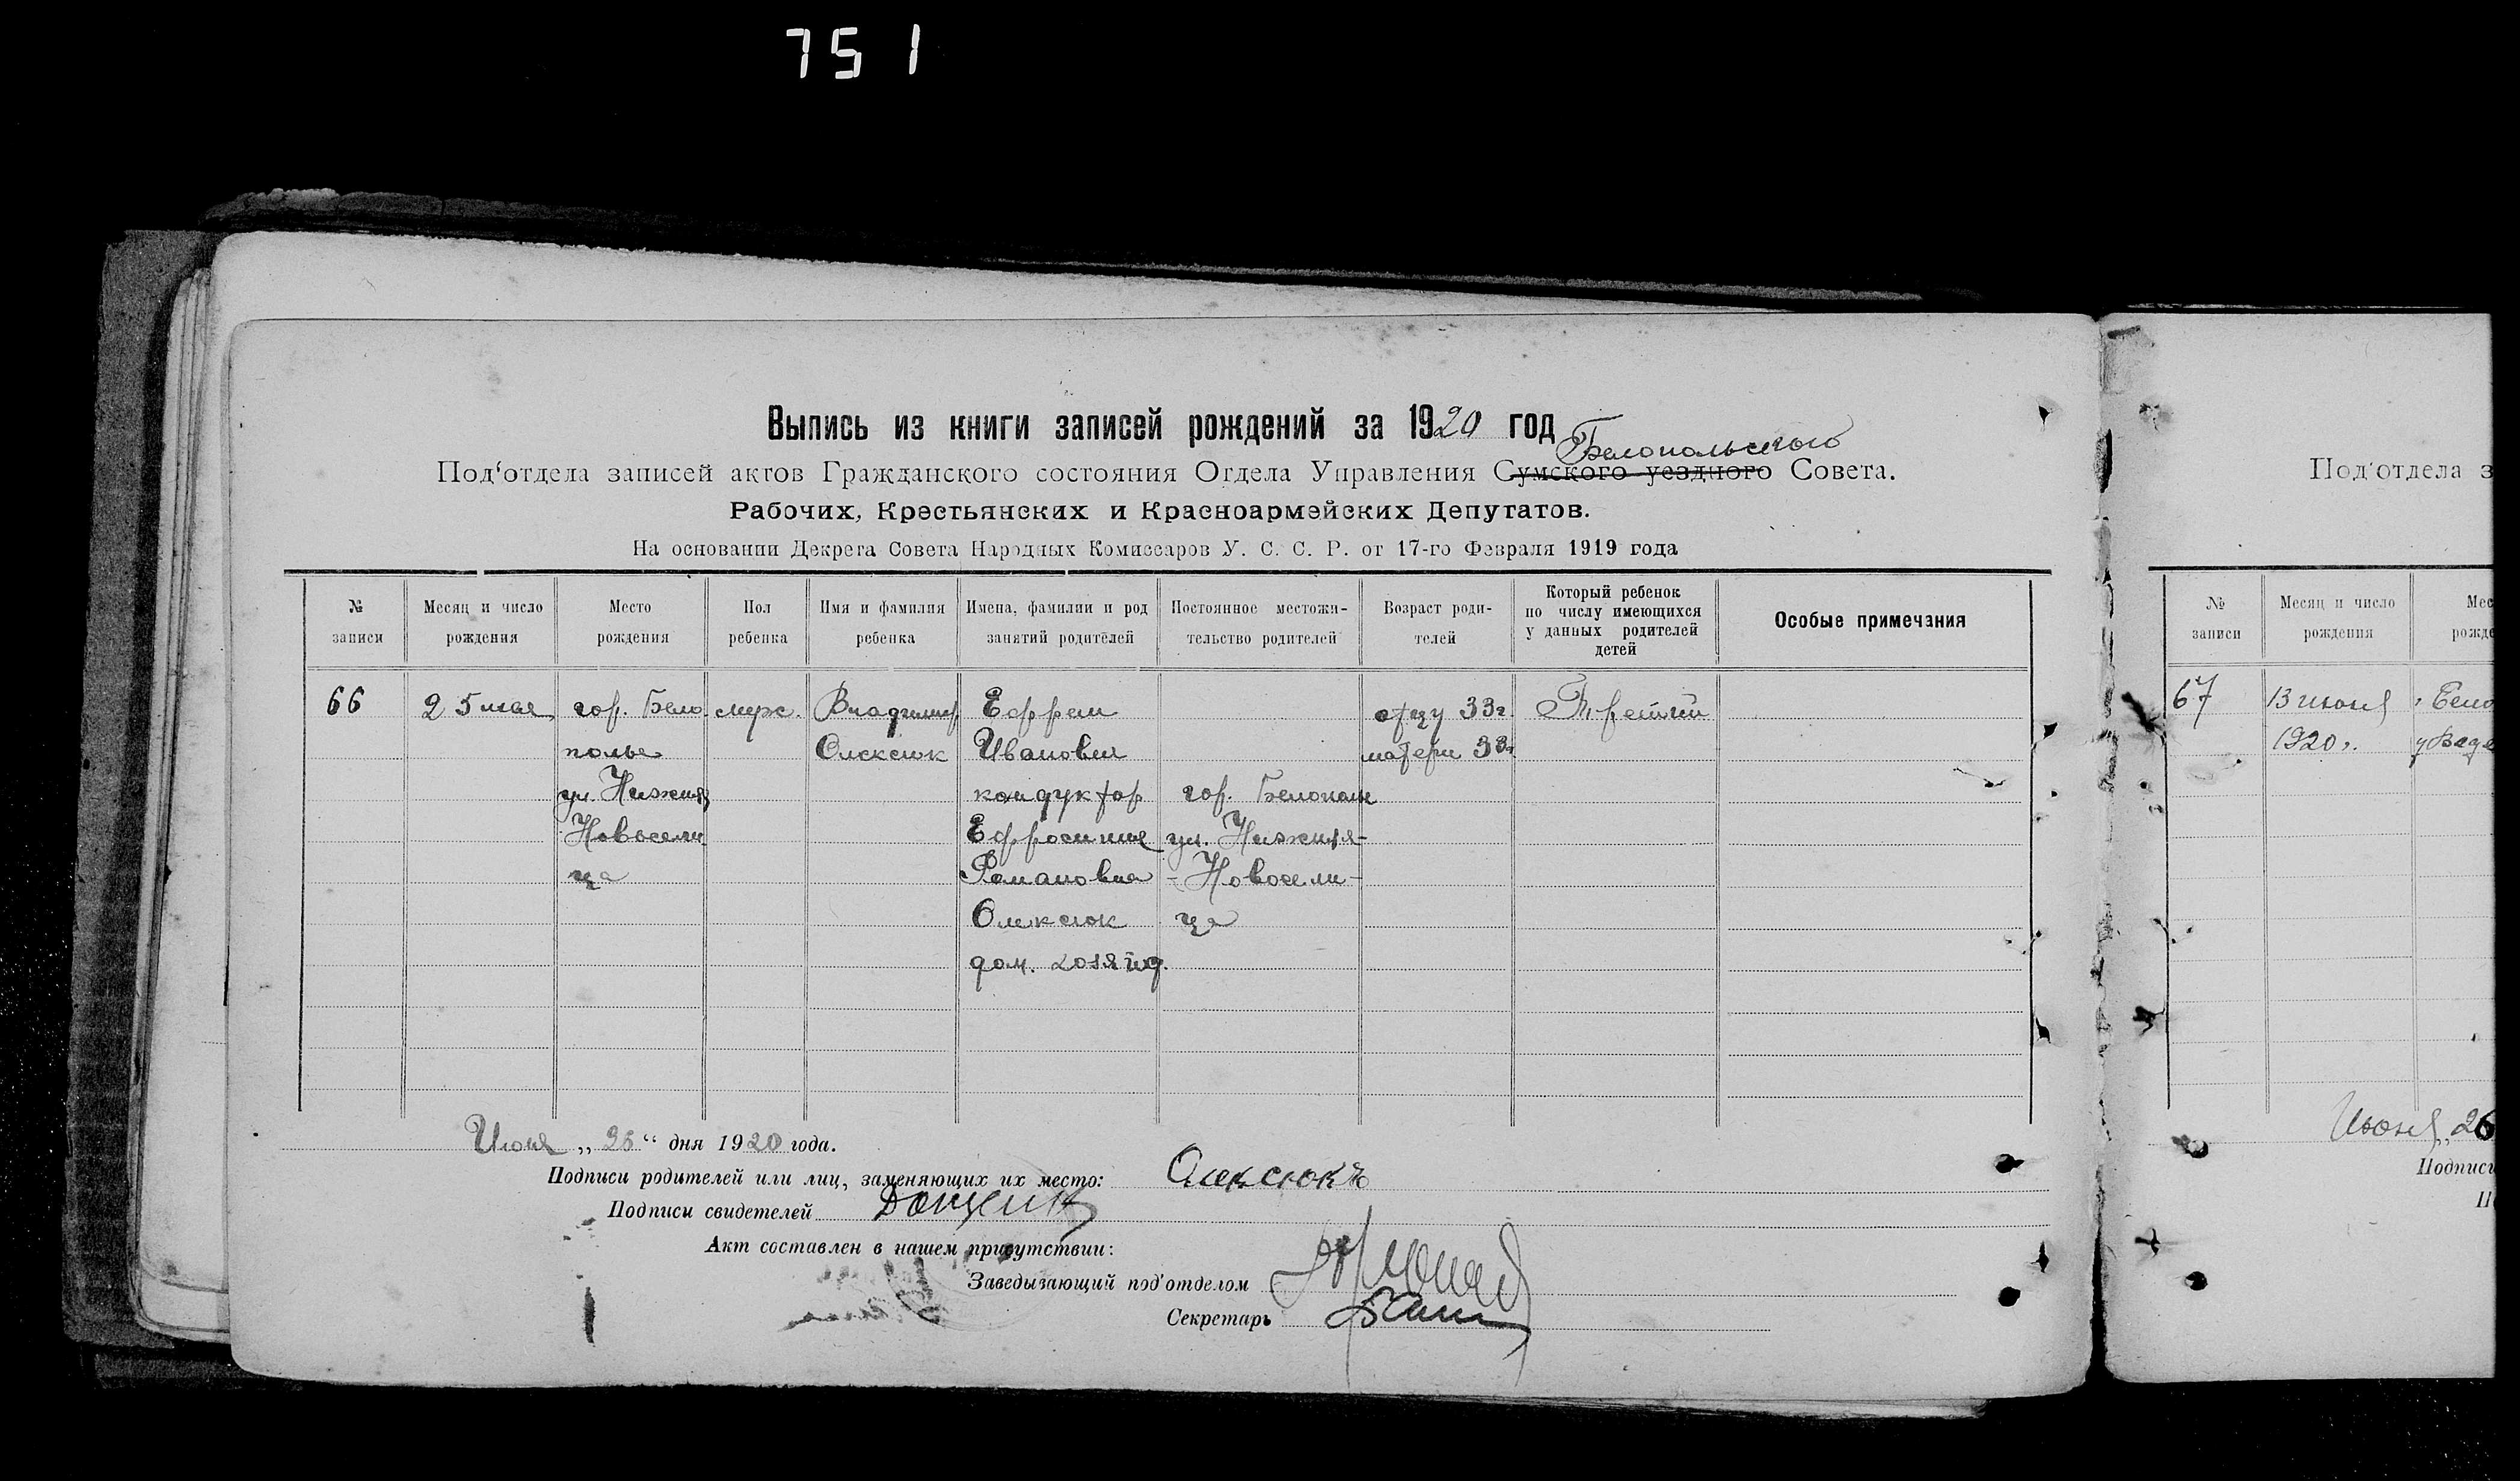 751
Выпись из книги записей рождений за 1920 год
Белопольского
Под'отдела записей актов Гражданского состояния Отдела Управления Сумского уездного Совета.
Рабочих, Крестьянских и Красноармейских Депутатов.
На основании Декрета Совета Народных Комиссаров У. С. С. Р. от 17-го Февраля 1919 года
№ записи
Месяц и число рождения
Место рождения
Пол ребенка
Имя и фамилия ребенка
Имена, фамилии и род занятий родителей
Постоянное местожительство родителей
Возраст родителей
Который ребенок по числу имеющихся у данных родителей детей
Особые примечания
66 25 мая гор. Бело муж. Владимир Ефрем отцу 33 г. Третий
полье Олексюк Иванович матери 33 г.
ул. Нижняя кондуктор гор. Белополье
Новосели Ефросиния ул. Нижняя-
ца Романовна -Новосели-
Олексюк ца
дом. хозяйд.
Июня „26“ дня 1920 года.
Подписи родителей или лиц, заменяющих их место: Олексюкъ
Подписи свидетелей
Акт составлен в нашем присутствии:
Заведызающий под'отделом
Секретарь
Под'отдела з
№ записи
Месяц и число рождения
Мес
рожде
67 13 июня Бело
1920 г.
Июня „26
Подписи
П